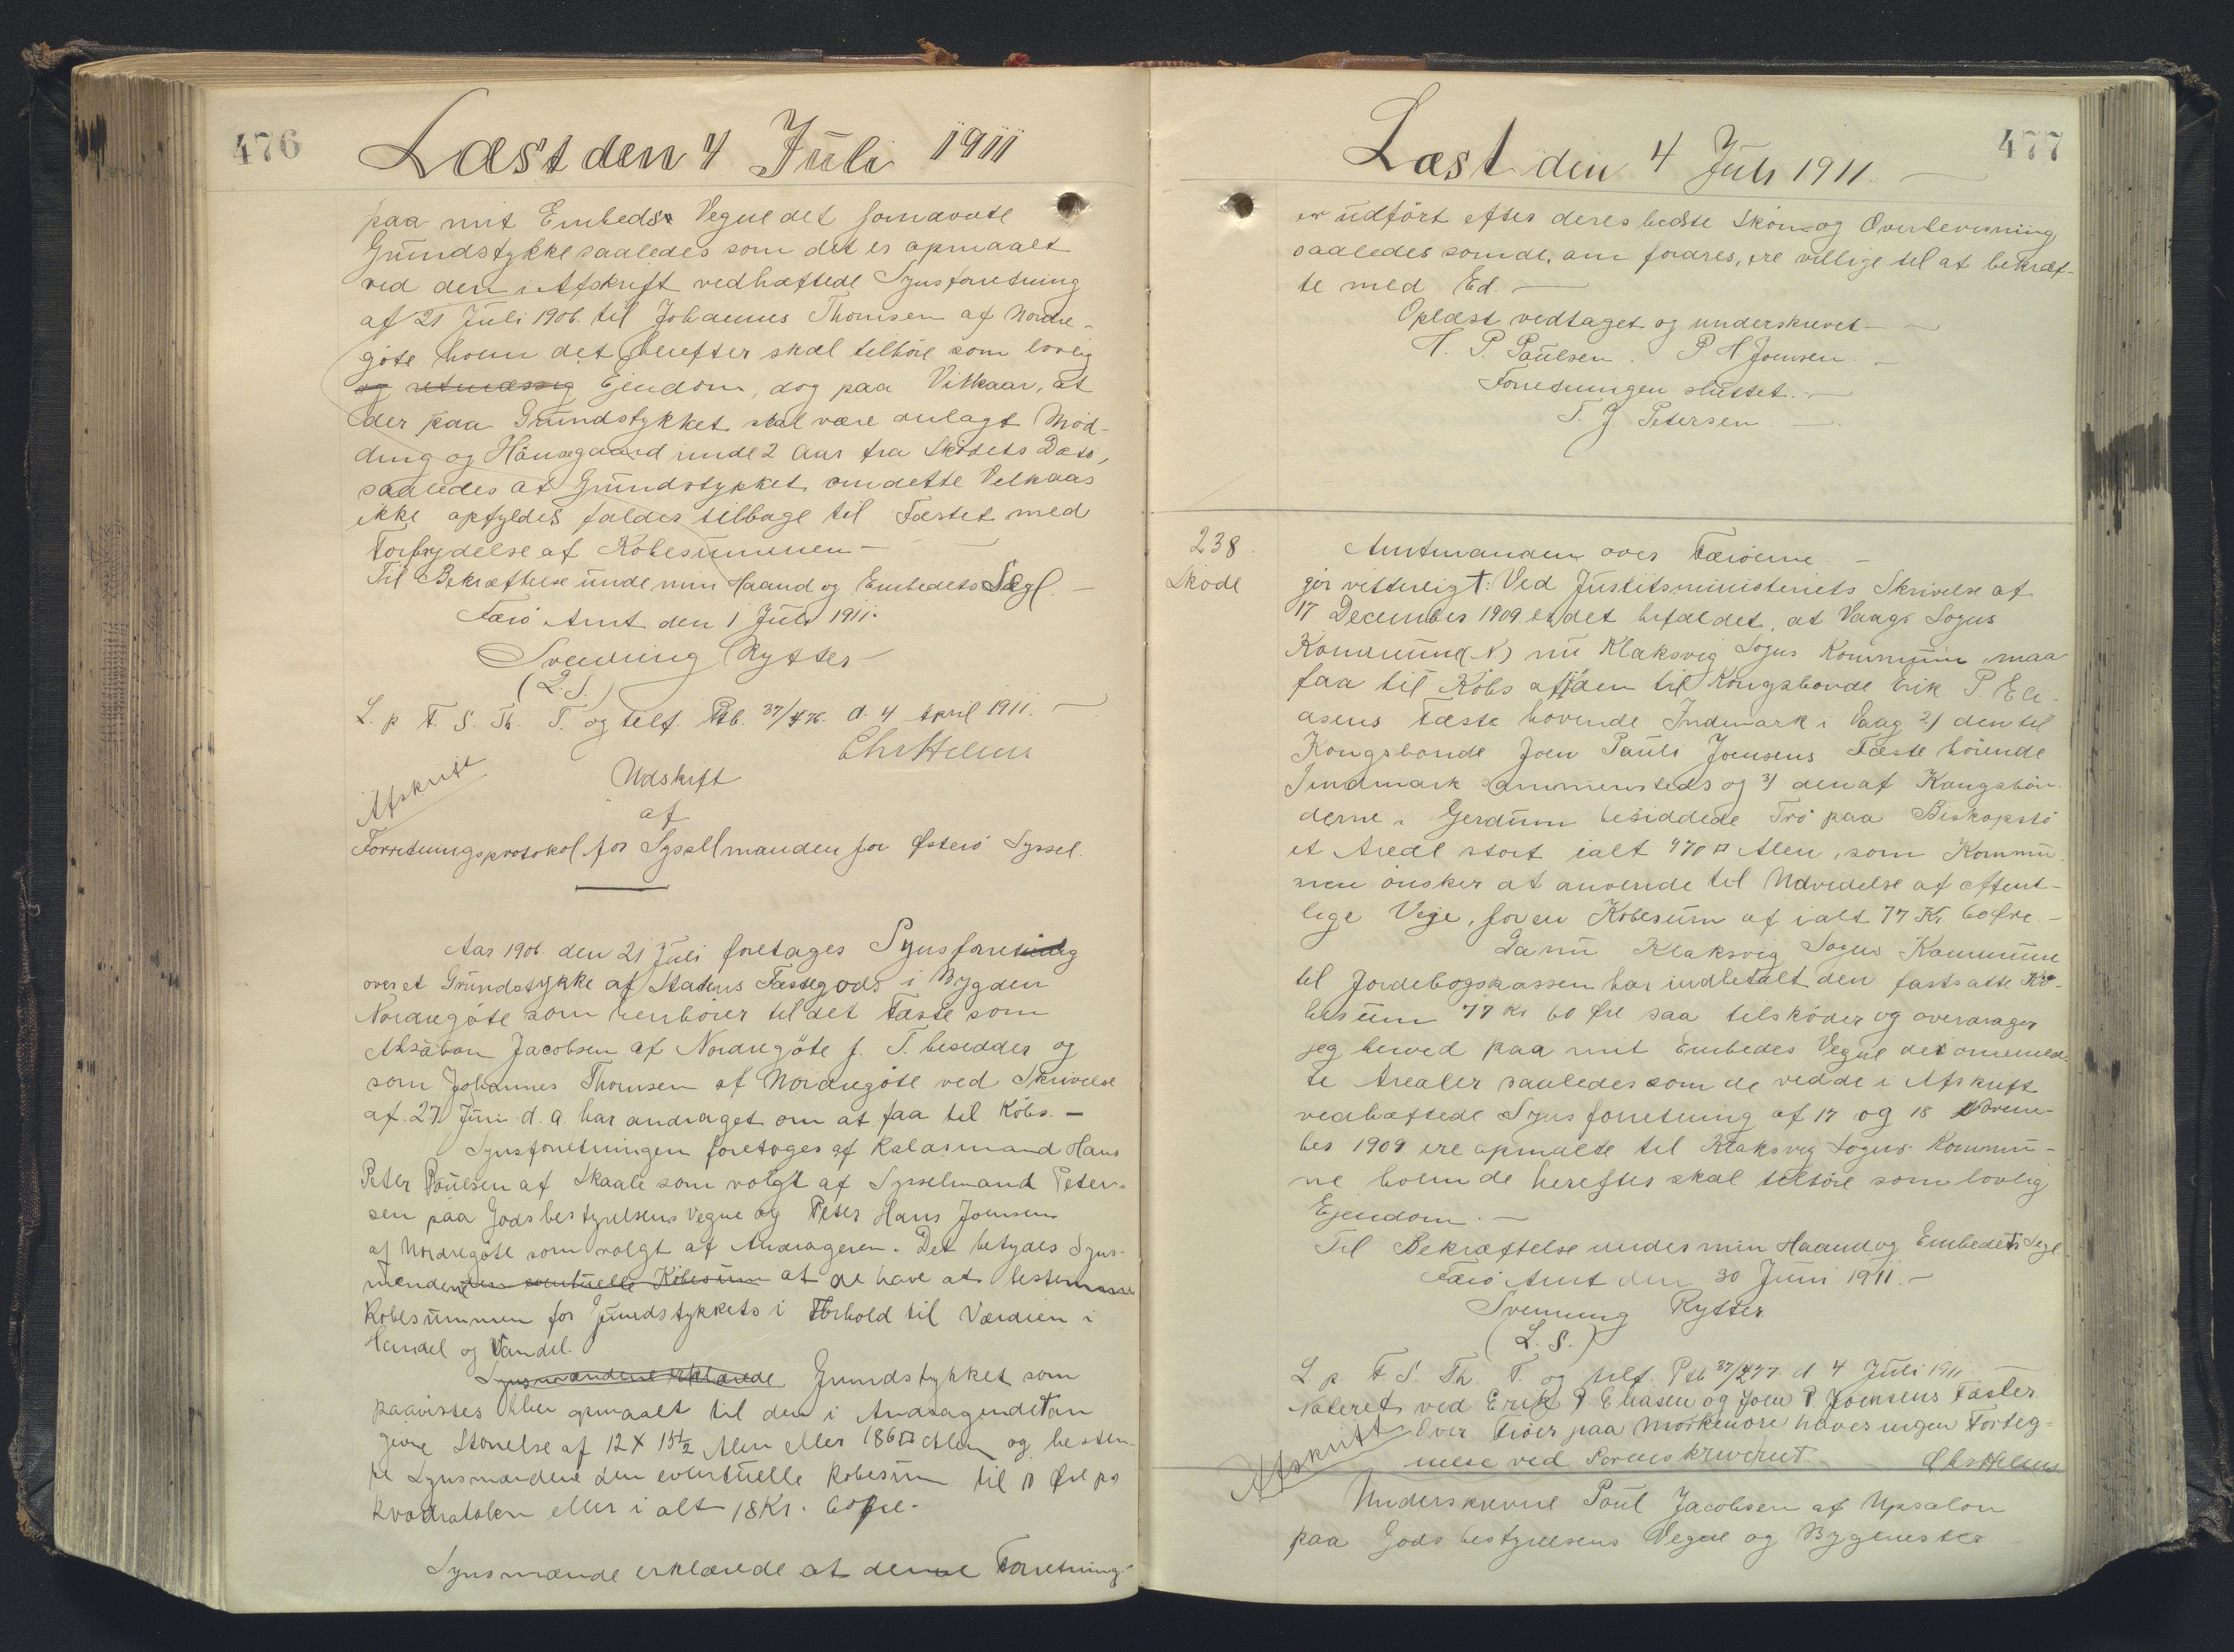 476
Læst den 4 Juli 1911
paa mit Embeds Vegne det fornævnte
Grundstykke saaledes som det er opmaalt
ved den i Afskrift vedhæftede Synsforretning
af 21 Juli 1906. til Johannes Thomsen af Nordre-
göte hvem det herefter skal tilhöre som lovlig
og retmæssig Ejendom, dog paa Vilkaar, at
der paa Grundstykket skal være anlagt Mød-
ding og Hönsegaard inde 2 Aar fra Skødets Dato,
saaledes at Grundstykket om dette Velkaar
ikke opfyldes falder tilbage til Fæstet med
Fortrydelse af Kobesummen-
Til Bekræftelse unde min Haand og Embedets Segl.-
Færö Amt den 1 Juli 1911.
Svenning Rytter-
(L.S.)
L. p T. S. Th. T. og telf. Ptb. 37/476. d. 4 April 1911.
Chr Helms
Afskrift
Udskrift
af
Forretningsprotokol for Sysselmanden for Østerö Syssel.
Aar 1906 den 21 Juli foretages Synsforretning
over et Grundstykke af Statens Fæstegods i Bygden
Nordregöte som henhörer til det Fæste som
Jacobsen af Nordregöte f. T. besidder og
som Johannes Thomsen af Nordregöte ved Skrivelse
af 27 Juni d. a. har andraget om at faa til Köbs.-
Synsforretningen foretoges af Kalasmand Hans
Peter Poulsen af Skaale som valgt af Sysselmand Peter-
sen paa Godsbestyrelsens Vegne og Peter Hans Joensen
af Nordregöte som valgt af Andrageren. Det betydes Syns-
mændene den eventuelle Köbesum at de have at bestemme
Köbesummen for Grundstykkets i Forhold til Værdien i
Handel og Vandel.
Synsmændene erklærede Grundstykket som
paavistes blev opmaalt til den i Andragendet an
givne Störrelse af 12 X 15½ Alen eller 186 □ Alen og bestem-
te Synsmændene den eventuelle Købesum til 10 Øre pr
kvadratalen eller i alt 18 Kr. 60 Øre.
Synsmænde erklærede at denne Forretning
477
Læst den 4 Juli 1911.
er udført efter deres bedste Skön og Overbevisning
saaledes som de, om fordres, ere villige til at bekræf-
te med Ed.
Oplæst vedtaget og underskrevet-
H. P. Paulsen. P H Joensen.-
Forretningen sluttet.-
T. J. Petersen
238.
Skøde
Amtmanden over Færöerne.-
gör vitterligt: Ved Justitsministeriets Skrivelse af
17 December 1909 er det bifaldet, at Vaags Sogns
Kommune (N) nu Klaksvig Sogns Kommune maa
faa til Köbs af 1) den til Kongsbonde Erik P. Eli-
asens Fæste hörende Indmark i Vaag 2) den til
Kongsbonde Joen Pauli Joensens Fæste hörende
Indmark sammesteds og 3) den af Kongsbön-
derne i Gerdum besiddede Trö paa Biskopstö
et Areal stort ialt 970 □ Alen, som Kommu-
nen önsker at anvende til Udvidelse af offent-
lige Veje, for en Kobesum af ialt 77 Kr 60 Øre.-
Da nu Klaksvig Sogns Kommune
til Jordebogskassen har indbetalt den fastsatte Kö-
besum 77 Kr 60 Øre saa tilsköder og overdrager
jeg herved paa mit Embedes Vegne det ommeld-
te Arealer saaledes som de ved de i Afskrift
vedhæftede Synsforretning af 17 og 18 Novem-
ber 1909 ere opmaalte til Klaksvig Sogns Kommu-
ne hvem de herefter skal tilhöre som lovlig
Ejendom.-
Til Bekræftelse under min Haand og Embedets Segl.
Færö Amt den 30 Juni 1911.-
Svenning Rytter.
(L. S.)
L. p. T. S. Th. T. og telf. Ptb 37/477. d 4 Juli 1911
Noteret ved Erik P. Eliasen og Joen P. Joensens Fæster.
Over Tröer paa Mörkenöre haves ingen Forteg-
nelse ved Sorenskriveriet.
Chr Helms
Afskrift
Underskrevne Poul Jacobsen af Upsalon
paa Godsbestyrelsens Vegne og Bygmester